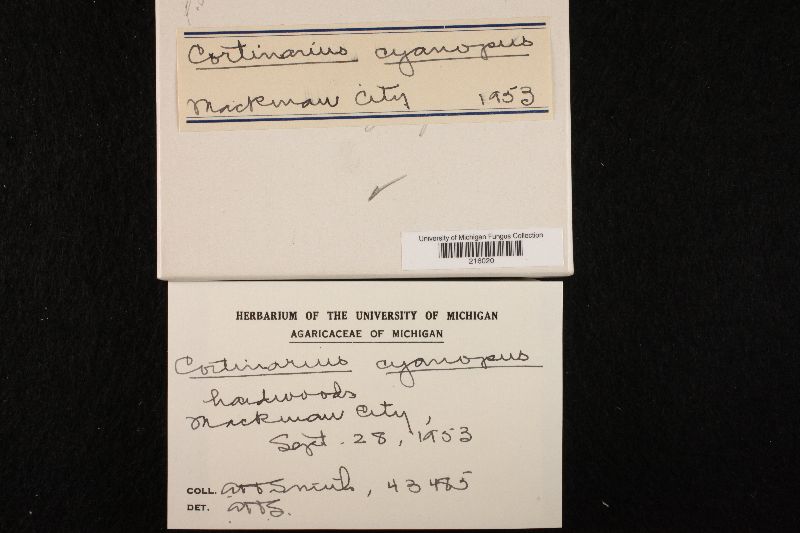 Cortinarius cyanopus
Mackinaw City 1953
University of Michigan Fungus Collection
218020
HERBARIUM OF THE UNIVERSITY OF MICHIGAN
AGARICACEAE OF MICHIGAN
Cortinarius cyanopus
hardwoods
Mackinaw City,
Sept. 28, 1953
COLL. AHSmith, 43485
DET. AHS.